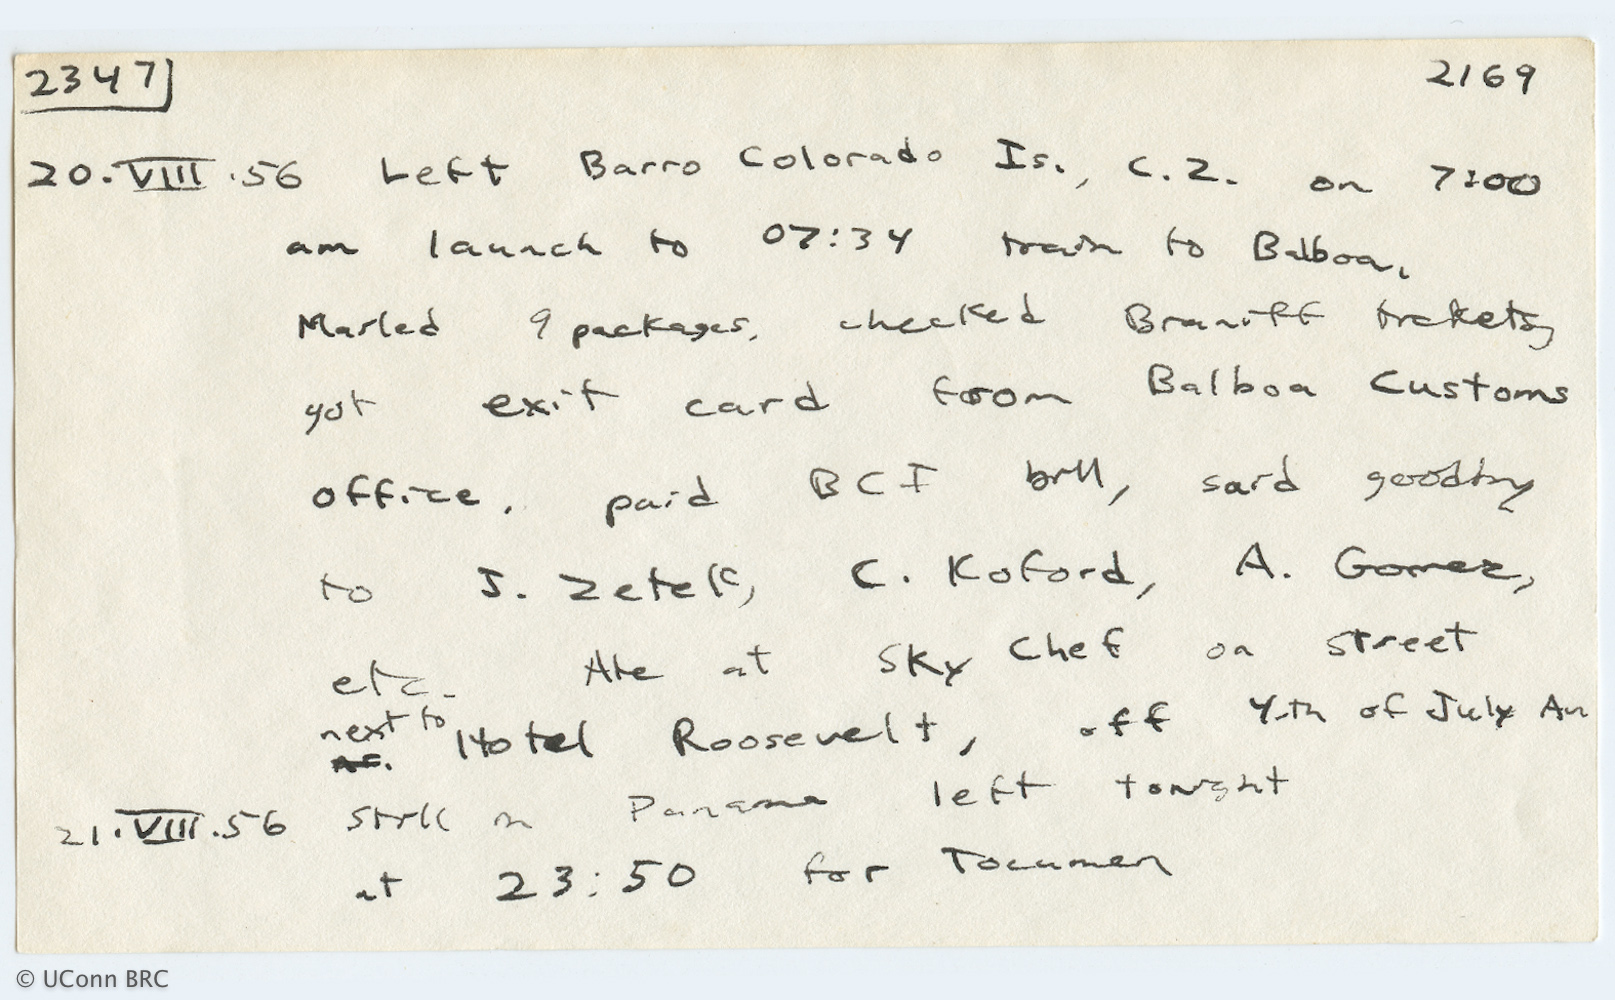 2347 2169
20.VIII.56 Left Barro Colorado Is., C.Z. on 7:00
am launch to 07:34 train to Balboa,
Mailed 9 packages, checked Braniff tickets,
got exit card from Balboa Customs
office, paid BCI bill, said goodby
to J. Zetek, C. Koford, A. Gomez,
etc. Ate at Sky Chef on street
next to Hotel Roosevelt, off 4th of July Av
21.VIII.56 Still in Panama left tonight
at 23:50 for Tocumen
© UConn BRC